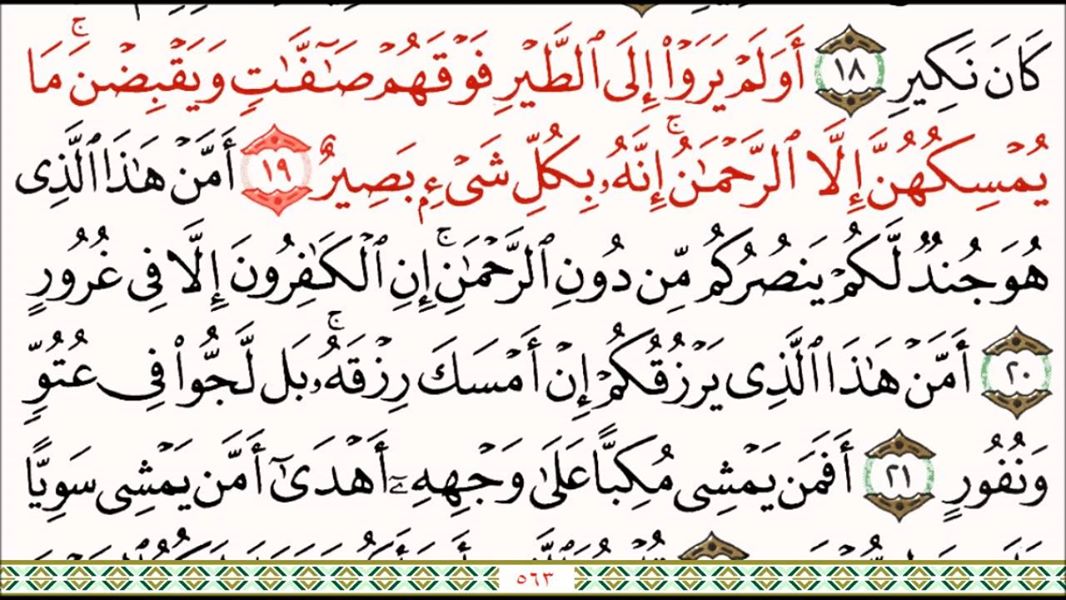 كَانَ نَكِيرِ ١٨ أَوَلَمْ يَرَوْا۟ إِلَى ٱلطَّيْرِ فَوْقَهُمْ صَـٰٓفَّـٰتٍ وَيَقْبِضْنَ ۚ مَا
يُمْسِكُهُنَّ إِلَّا ٱلرَّحْمَـٰنُ ۚ إِنَّهُۥ بِكُلِّ شَىْءٍۭ بَصِيرٌ ١٩ أَمَّنْ هَـٰذَا ٱلَّذِى
هُوَ جُندٌ لَّكُمْ يَنصُرُكُم مِّن دُونِ ٱلرَّحْمَـٰنِ ۚ إِنِ ٱلْكَـٰفِرُونَ إِلَّا فِى غُرُورٍ
٢٠ أَمَّنْ هَـٰذَا ٱلَّذِى يَرْزُقُكُمْ إِنْ أَمْسَكَ رِزْقَهُۥ ۚ بَل لَّجُّوا۟ فِى عُتُوٍّ
وَنُفُورٍ ٢١ أَفَمَن يَمْشِى مُكِبًّا عَلَىٰ وَجْهِهِۦٓ أَهْدَىٰٓ أَمَّن يَمْشِى سَوِيًّا
٥٦٣